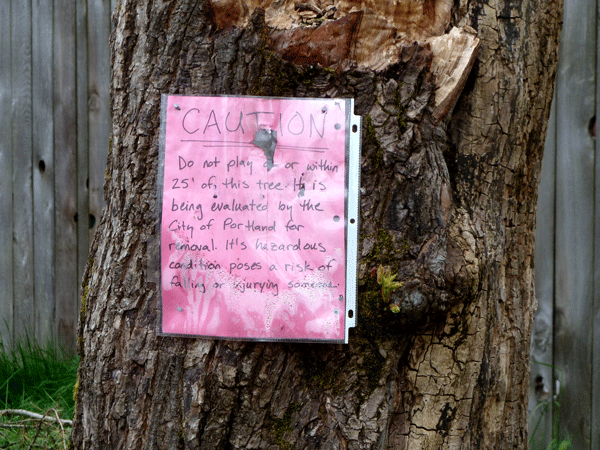 CAUTION
Do not play on or within
25' of this tree. It is
being evaluated by the
City of Portland for
removal. It's hazardous
condition poses a risk of
falling or injurying someone.